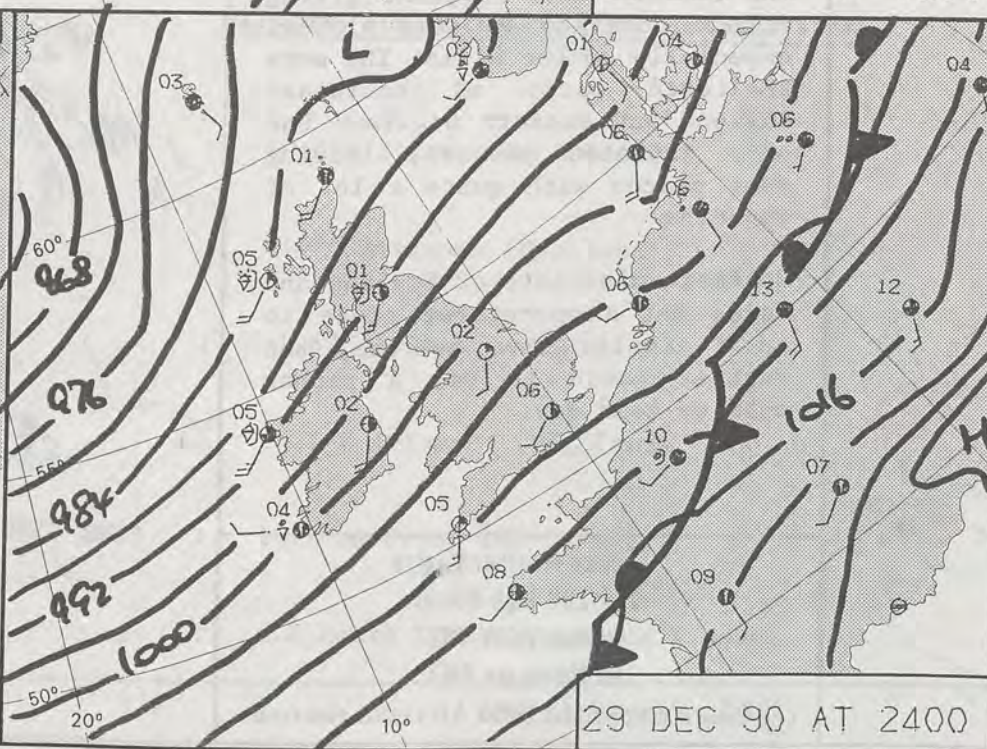 L
02
01
04
04
03
06
06
01
06
60°
968
05
01
06
13
12
02
976
06
1016
05
02
H
10
55°
07
984
04
05
992
08
09
1000
50°
20°
10°
29 DEC 90 AT 2400